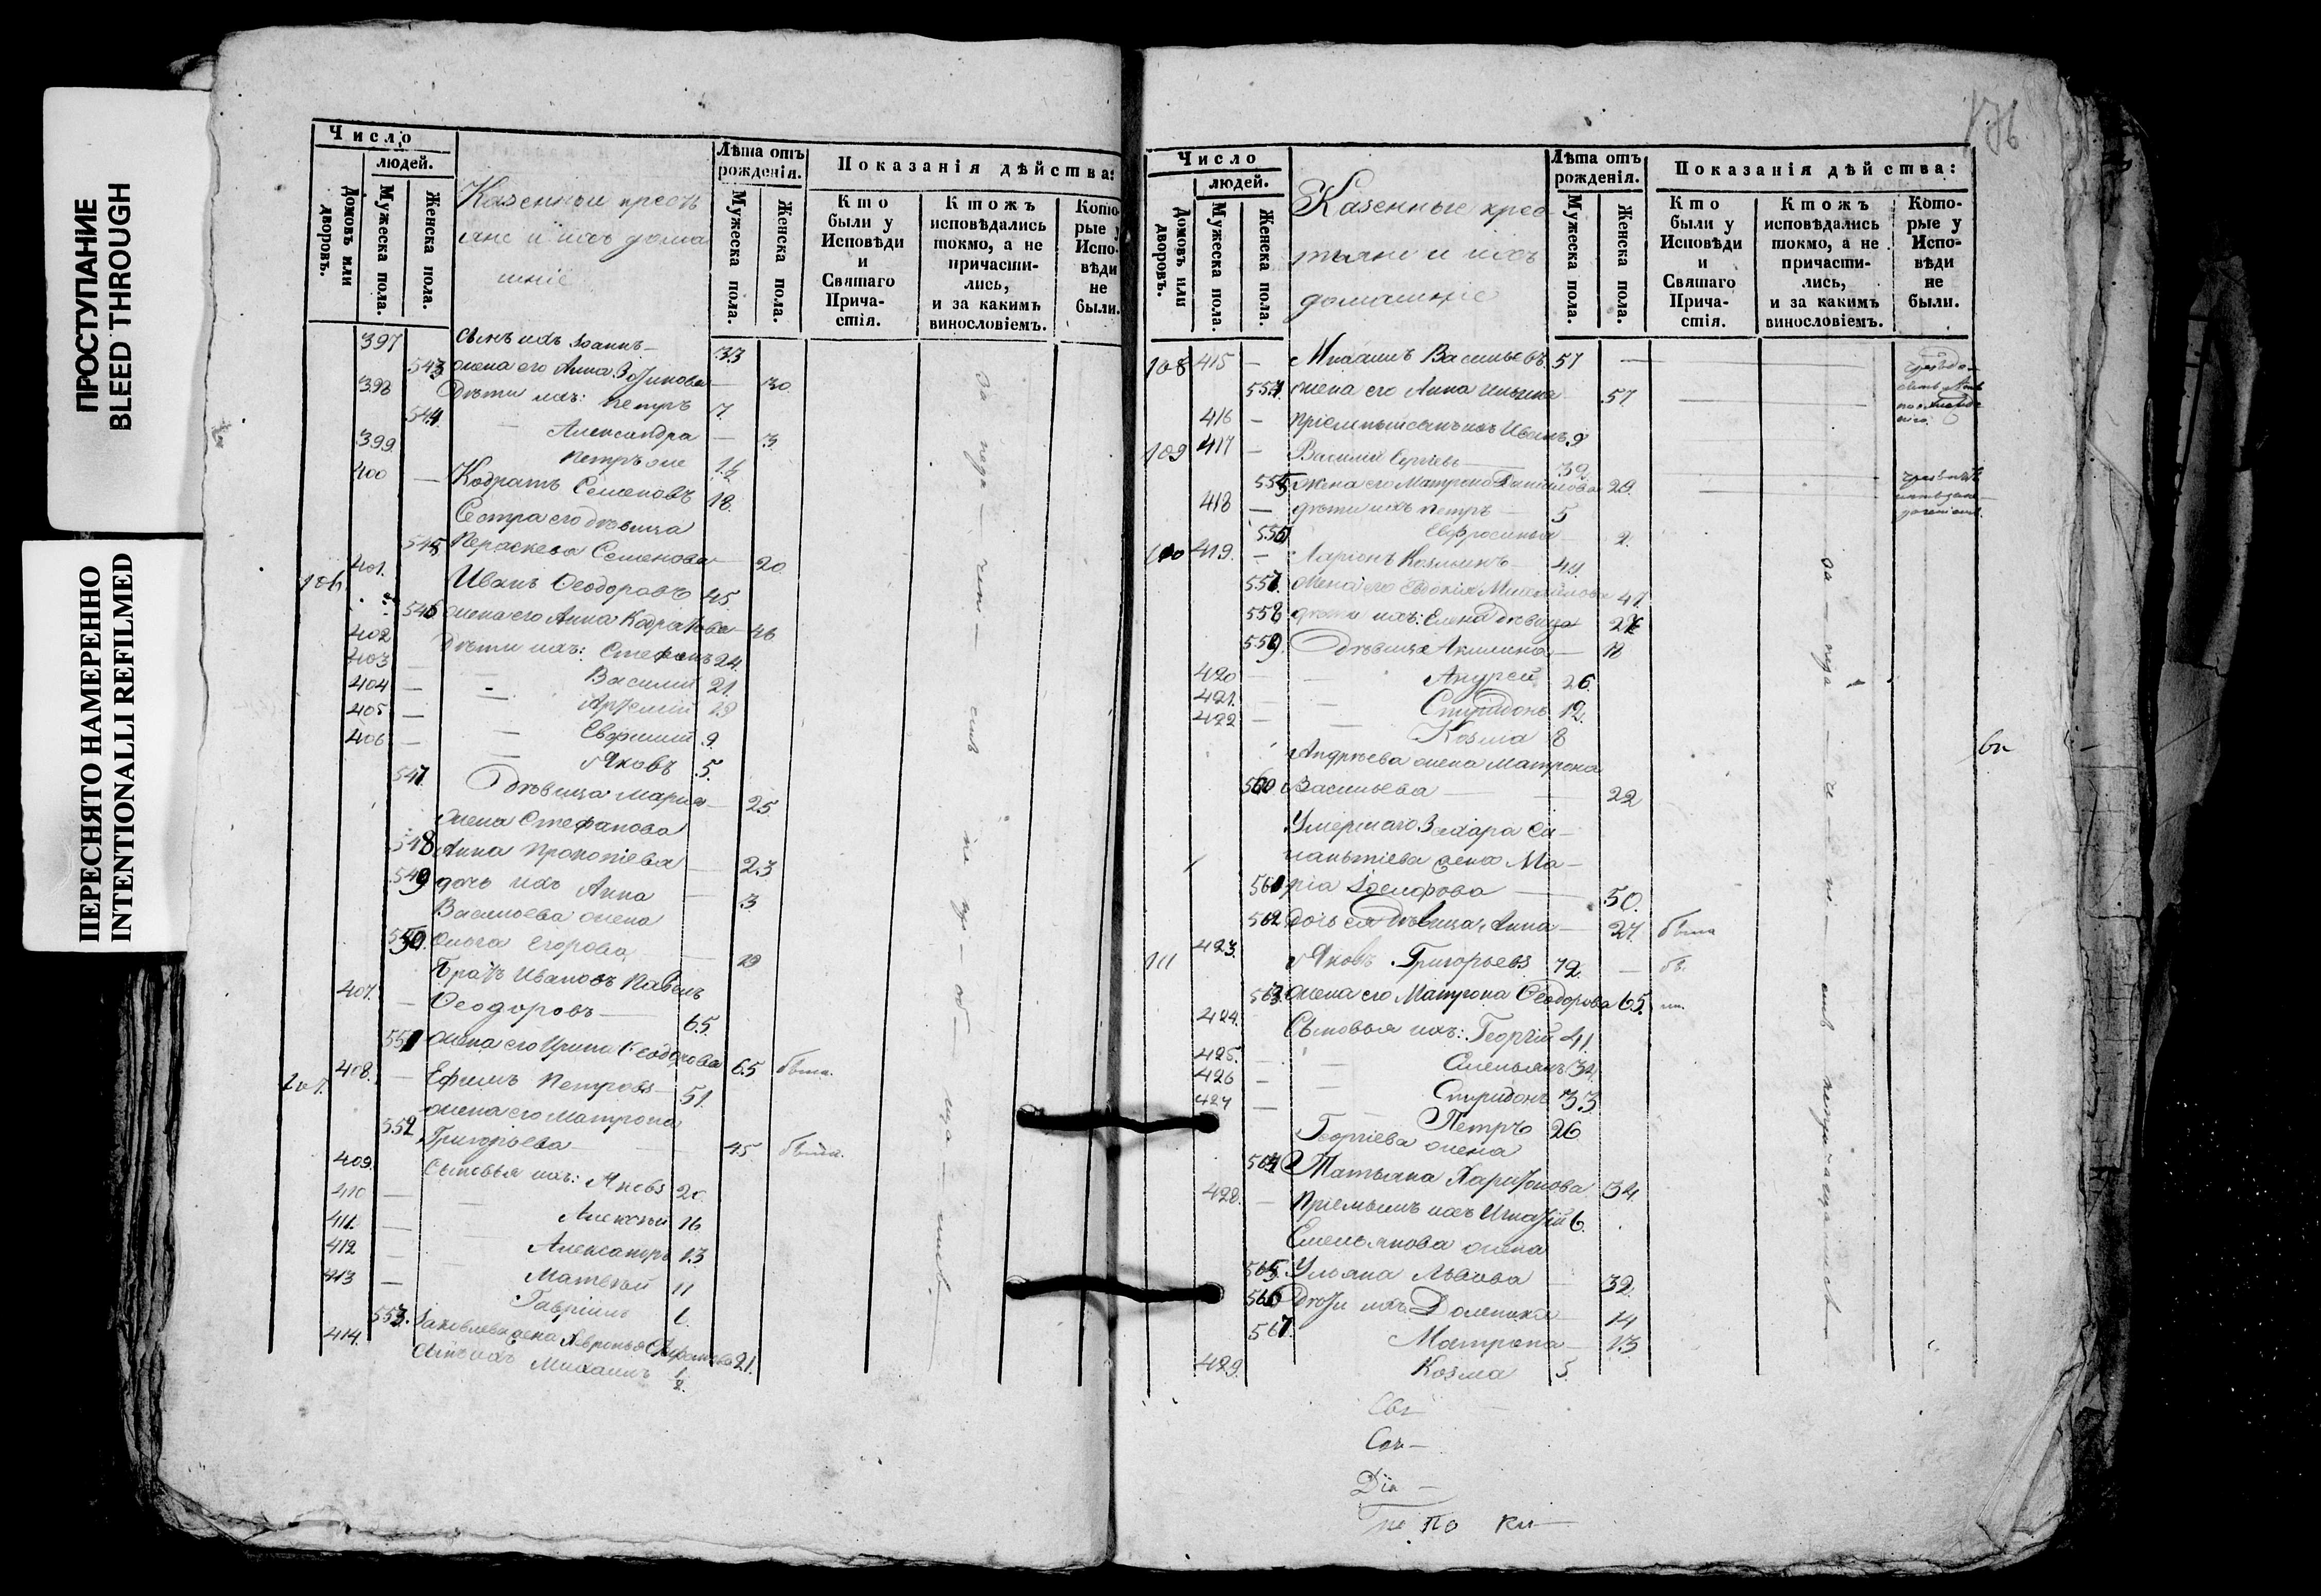 ПРОСТУПАНИЕ
BLEED THROUGH
ПЕРЕСНЯТО НАМЕРЕННО
INTENTIONALLI REFILMED
Число
людей.
Домовъ или дворовъ.
Мужеска пола.
Женска пола.
Казенныи крестъ
яне и ихъ дома
шніе
Лѣта отъ рожденія.
Мужеска пола.
Женска пола.
Показанія дѣйства:
Кто были у Исповѣди и Святаго Прича- стія.
Ктожъ исповѣдались токмо, а не причасти- лись, и за какимъ винословіемъ.
Кото- рые у Испо- вѣди не были.
397 сынъ ихъ Іоаннъ 33
543 жена его Анна Зотикова 30
398 Дѣти ихъ: Петръ 7
544 Александра 3
399 Петръ же 1½
400 Кодратъ Семеновъ 18
Сестра его дѣвица
545 Пераскева Семенова 20
106 401 Иванъ Ѳеодоровъ 45
546 жена его Анна Кодратова 46
402 Дѣти ихъ: Стефанъ 24
403 Василій 21
404 Артемій 19
405 Евфимій 9
406 Яковъ 5
547 Дѣвица Марія 25
Жена Стефанова
548 Анна Прокопіева 23
549 дочь ихъ Анна 3
Васильева жена
550 Ольга Егорова 19
Братъ Ивановъ Павелъ
407 Ѳеодоровъ 65
551 жена его Ирина Ѳеодорова 65 была.
107 408 Ефимъ Петровъ 51
жена его Матрона
552 Григорьева 45 была.
409 Сыновья ихъ: Яковъ 20
410 Алексѣй 16
411 Александръ 13
412 Матвѣй 11
413 Гавріилъ
553 Яковлева жена 21
414 сынъ ихъ Михаилъ ½
176
Число
людей.
Домовъ или дворовъ.
Мужеска пола.
Женска пола.
Казенные крес
тьяне и ихъ
домашніе
Лѣта отъ рожденія.
Мужеска пола.
Женска пола.
Показанія дѣйства:
Кто были у Исповѣди и Святаго Прича- стія.
Ктожъ исповѣдались токмо, а не причасти- лись, и за какимъ винословіемъ.
Кото- рые у Испо- вѣди не были.
108 415 Михаилъ Васильевъ 57
554 жена его Анна Ильина 57
416 пріемный сынъ ихъ Иванъ 9
109 417 Василій Сергѣевъ 32
555 жена его Матрона Данилова 29
418 дѣти ихъ Петръ 5
556 Евфросинья 2
110 419 Ларіонъ Козьминъ 44
557 жена его Евдокія 47
558 дѣти ихъ: Елена дѣвица
559 Дѣвица Акилина 18
420 Андрей 26
421 Спиридонъ 12
422 Козма 8
Андреева жена Матрона
560 Васильева 22
Умершаго Захара Си-
жена Ма-
561 рія Іосифова 50
562 дочь ея дѣвица Анна 27 была
111 423 Яковъ Григорьевъ 72
563 жена его Матрона Ѳеодорова 65
424 Сыновья ихъ: Георгій 41
425 Емельянъ 34
426 Спиридонъ 33
427 Петръ 26
Георгіева жена
564 Татьяна Харитонова 34
428 Пріемышъ ихъ Игнатій 6
Емельянова жена
565 Ульяна Львова 32
566 Дѣти ихъ Домника 14
567 Матрона 13
429 Козма 5
Свя
Діа
по